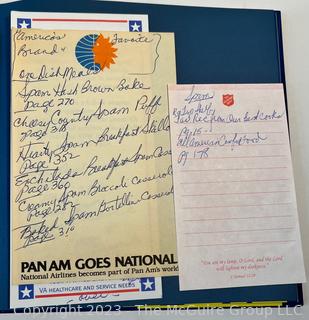 America's Favorite
Brand
One Dish Meals
Spam Hash Brown Bake
Page 270
Cheesy Country Spam Puff
Page 318
Hearty Spam Breakfast Skillet
Page 352
Enchilada Breakfast Spam Cass
Page 360
Creamy Spam Brocoli Casserole
Page 282
Baked Spam Tortellini Casserole
Page 310
PAN AM GOES NATIONAL
National Airlines becomes part of Pan Am's world
VA HEALTHCARE AND SERVICE NEEDS
over
Spam
Our Best Cooks
Pg 15
All American Comfort Food
Pg 178
"You are my lamp, O Lord, and the Lord
will lighten my darkness."
2 Samuel 22:29
Copyright 2023 - The McGuire Group LLC